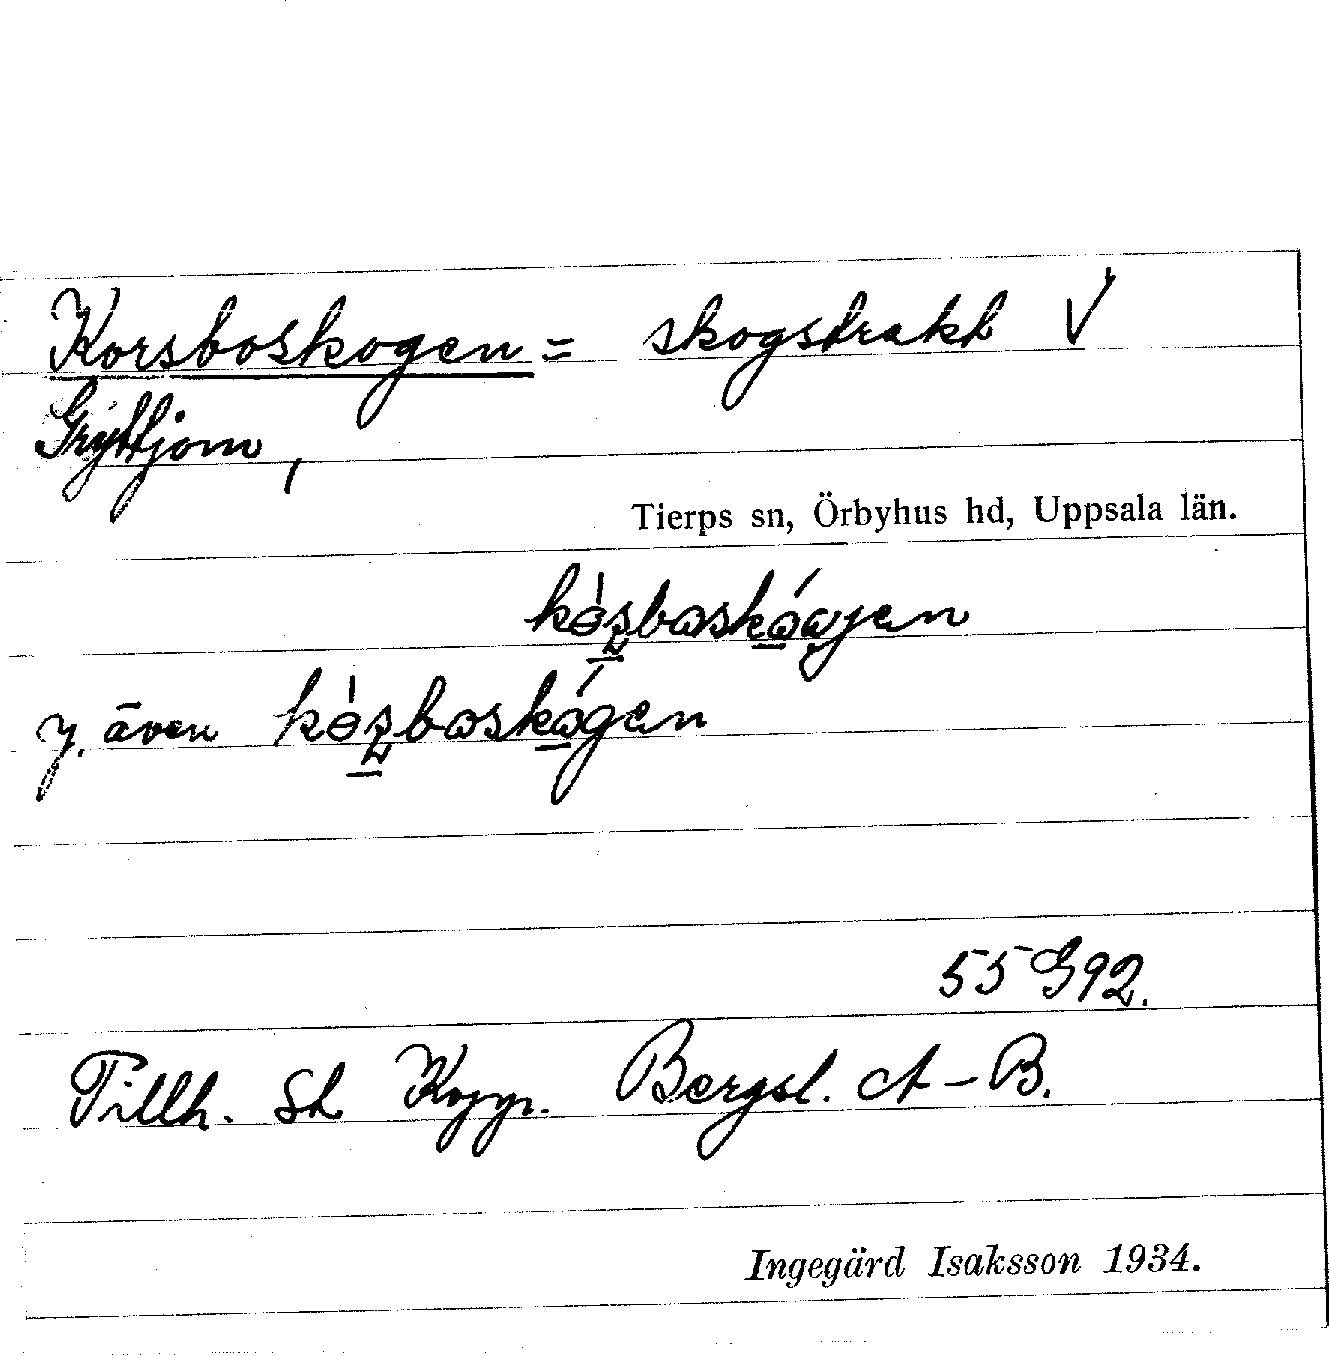 Korsboskogen = skogstrakt V
Gryttjom,
Tierps sn, Örbyhus hd, Uppsala län.
y. även
55 G92.
Tillh. St. Kopp. Bergsl. A-B.
Ingegärd Isaksson 1934.